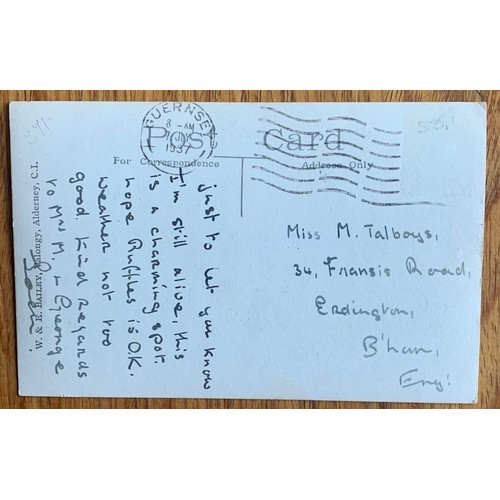 Post Card
GUERNSEY
8 - AM
JLY
1937
For Correspondence
Address Only
just to let you know
I'm still alive, this
is a charming spot.
hope Ruffles is O.K.
weather not too
good. Kind Regards
to Mrs M. & George
W. & E. BAILEY, Alderney, C.I.
Miss M. Talboys,
34, Fransis Road,
Erdington,
B'ham,
Eng: